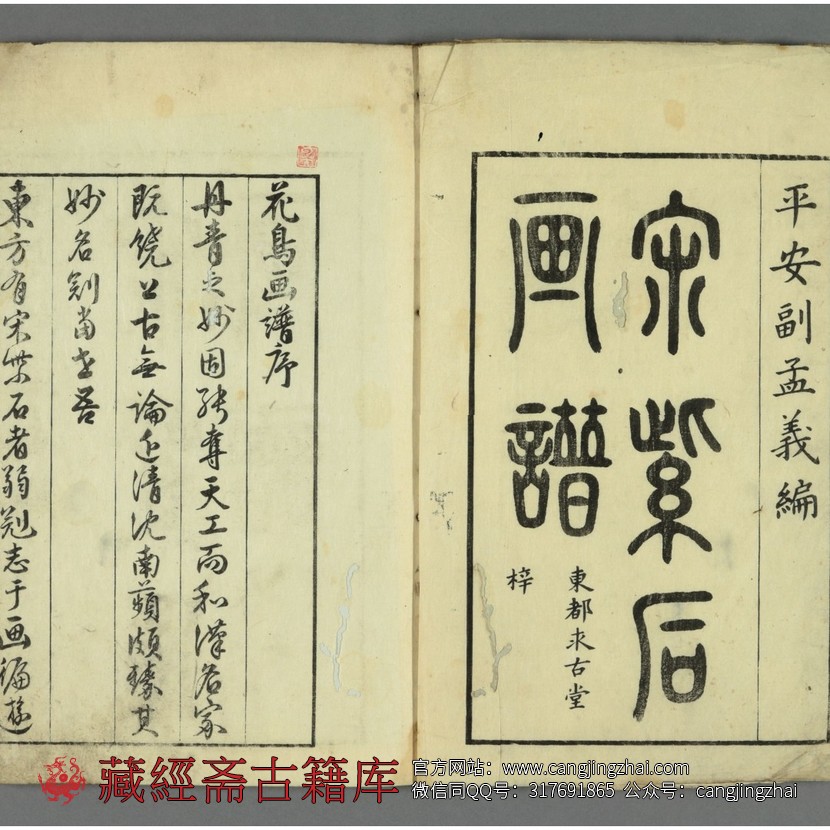 平安副孟義編
宋紫石
画譜
東都求古堂
梓
花鳥画譜序
丹青之妙固能奪天工而和漢名家
既饒上古無論近清沈南蘋頗臻其
妙名冠当世吾
東方有宋紫石者弱冠志于画徧遊
藏經斋古籍库
官方网站：www.cangjingzhai.com
微信同QQ号：317691865 公众号：cangjingzhai